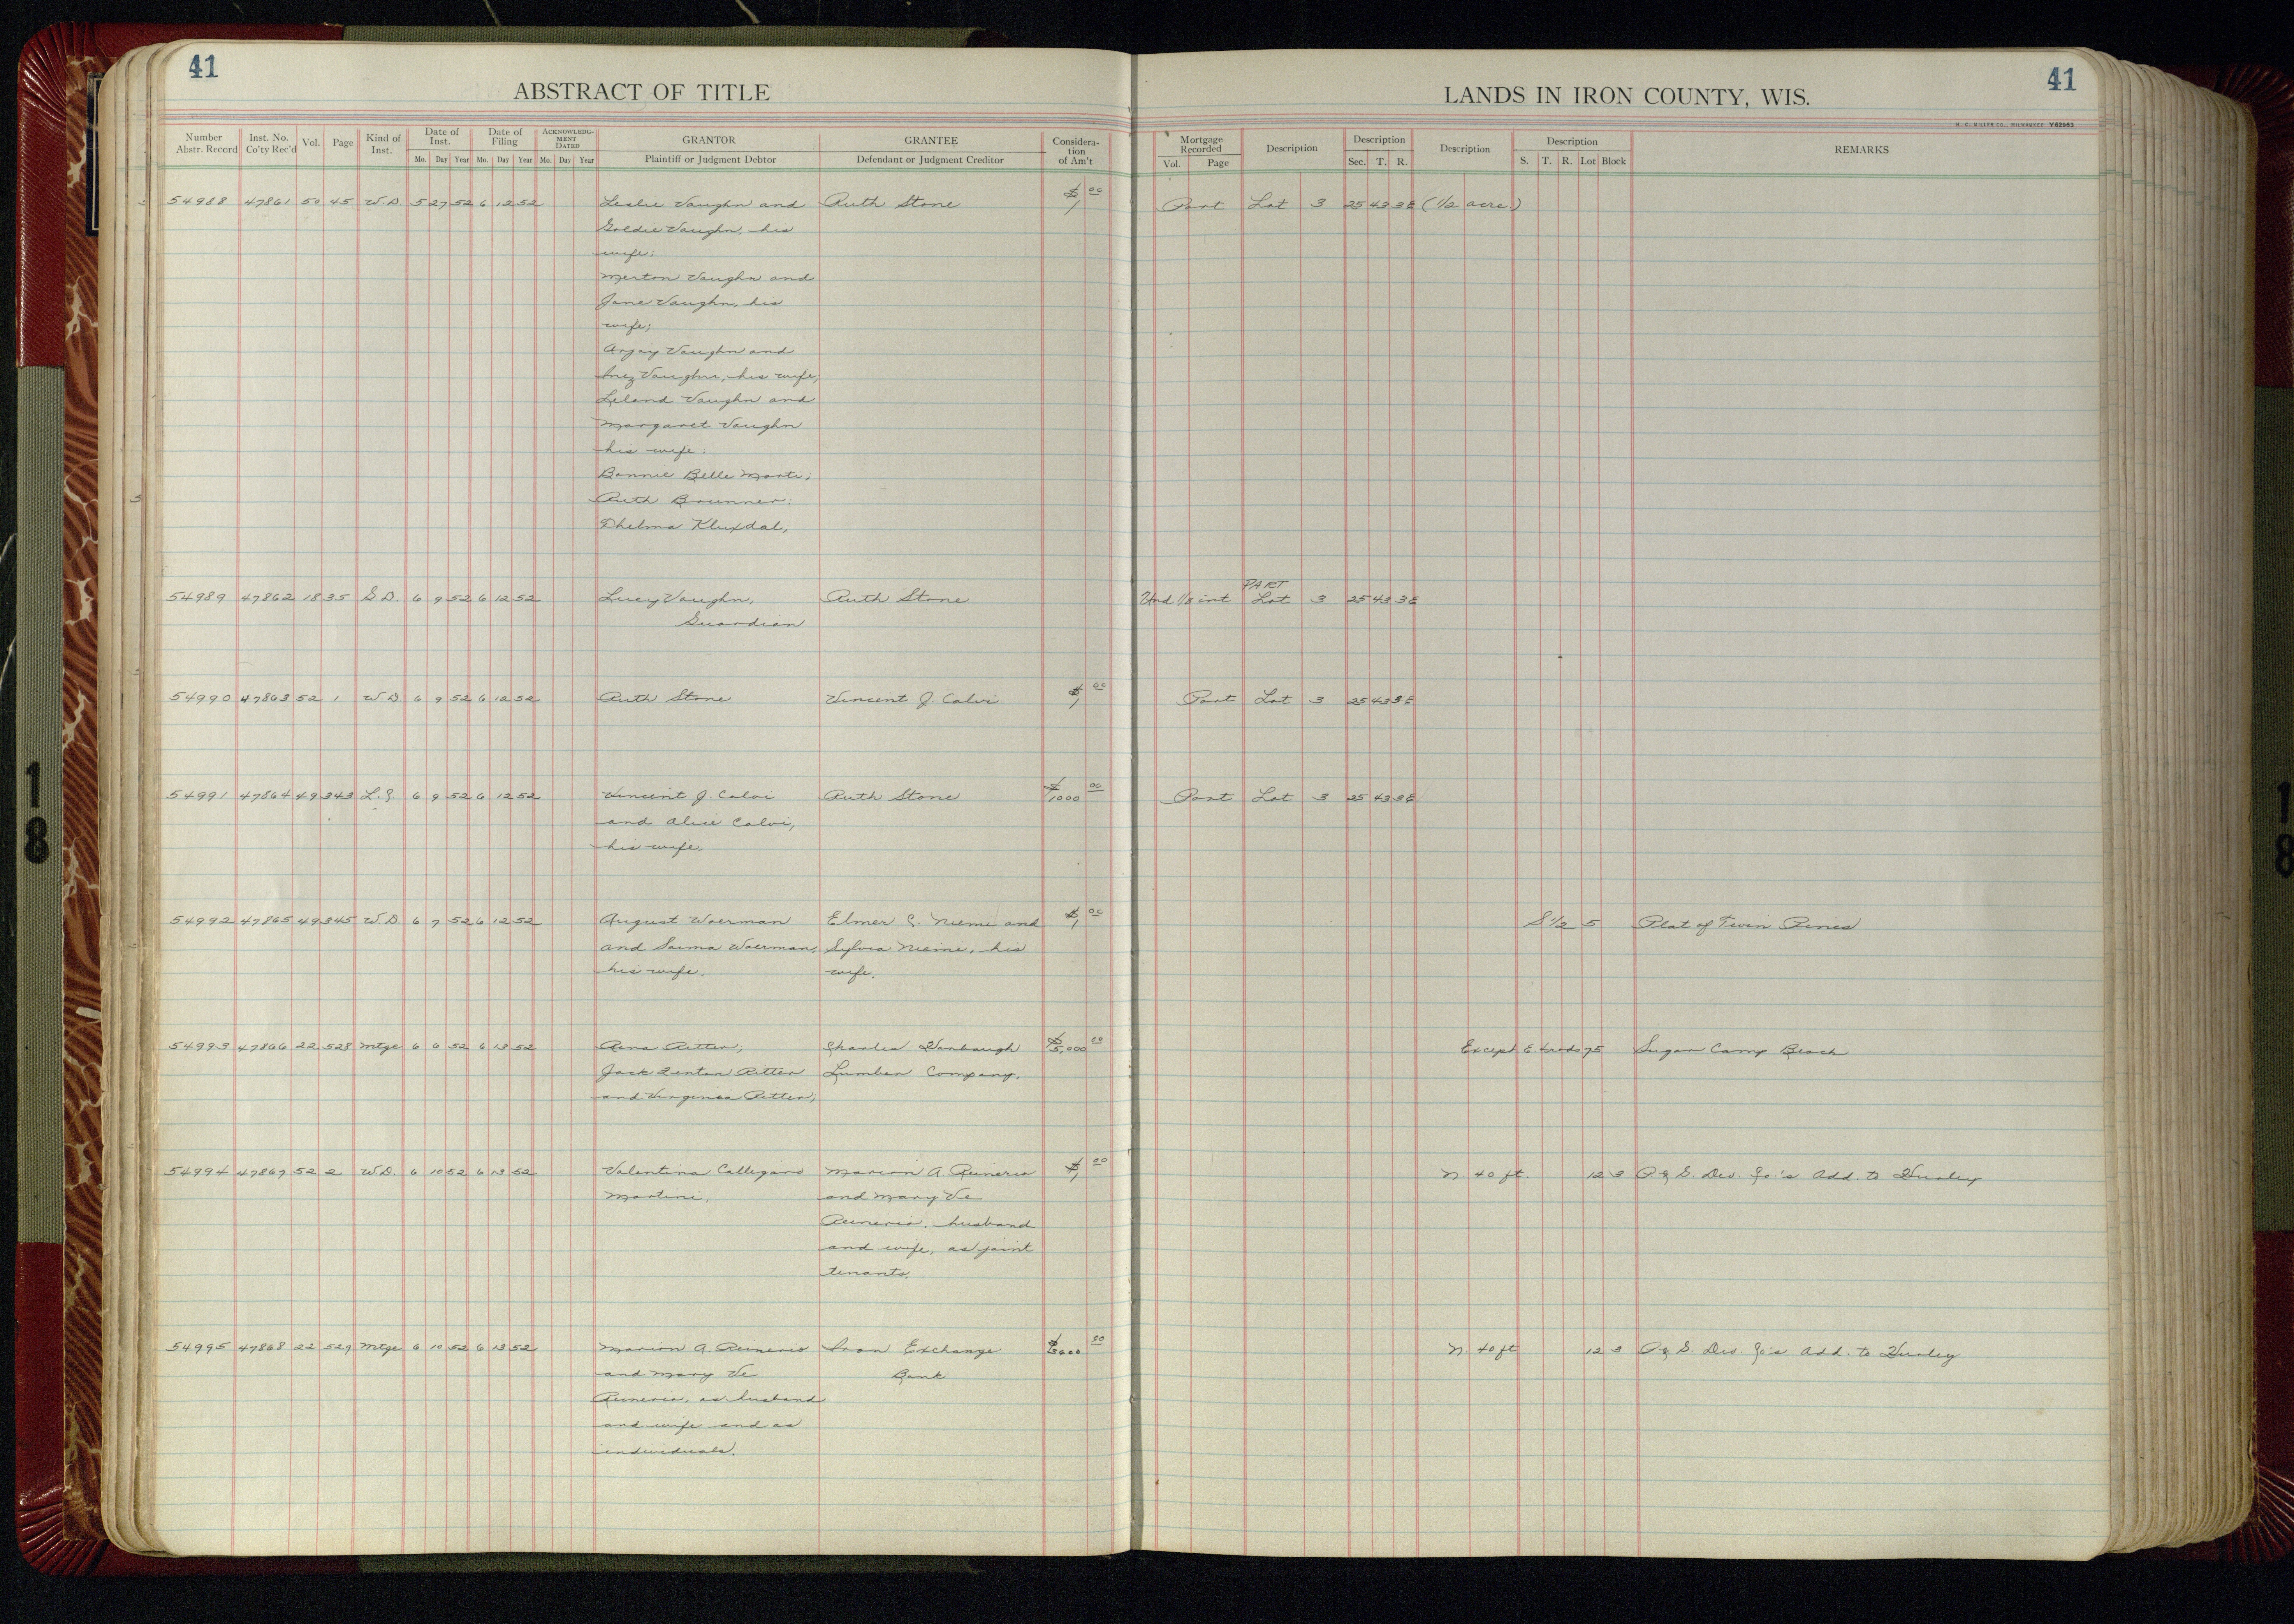 41
ABSTRACT OF TITLE
LANDS IN IRON COUNTY, WIS.
41
H. C. MILLER CO., MILWAUKEE Y62963
Number Abstr. Record Inst. No. Co'ty Rec'd Vol. Page Kind of Inst. Date of Inst. Mo. Day Year Date of Filing Mo. Day Year ACKNOWLEDGMENT DATED Mo. Day Year GRANTOR Plaintiff or Judgment Debtor GRANTEE Defendant or Judgment Creditor Consideration of Am't Mortgage Recorded Vol. Page Description Description Sec. T. R. Description Description S. T. R. Lot Block REMARKS
54988 47861 50 45 W.D. 5 27 52 6 12 52 Leslie Vaughn and Ruth Stone $1 00 Part Lot 3 25 43 3E (1/2 acre)
Goldie Vaughn, his
wife;
Merton Vaughn and
Jane Vaughn, his
wife;
Argay Vaughn and
Inez Vaughn, his wife;
Leland Vaughn and
Margaret Vaughn
his wife;
Bonnie Belle Marti;
Ruth Brunner;
Thelma Kluxdal,
PART
54989 47862 18 35 G.D. 6 9 52 6 12 52 Lucy Vaughn, Ruth Stone Und 1/8 int Lot 3 25 43 3E
Guardian
54990 47863 52 1 W.D. 6 9 52 6 12 52 Ruth Stone Vincent J. Calvi $1 00 Part Lot 3 25 43 3E
54991 47864 49 343 L.C. 6 9 52 6 12 52 Vincent J. Calvi Ruth Stone $1000 00 Part Lot 3 25 43 3E
and Alice Calvi,
his wife.
54992 47865 49 345 W.D. 6 7 52 6 12 52 August Waerman Elmer C. Niemi and $1 00 S 1/2 5 Plat of Twin Pines
and Saima Waerman, Sylvia Niemi, his
his wife. wife.
54993 47866 22 528 Mtge 6 6 52 6 13 52 Rena Ritter, Charles Lumber Company. $5,000 00 Except E. 75 Sugar Camp Beach
Jack Ritter
and Virginia Ritter,
54994 47867 52 2 W.D. 6 10 52 6 13 52 Valentina Callegaro Marion A. Runerio $1 00 N. 40 ft. 12 3 P. & S. Dev. Co.'s Add. to Hurley
Martini. and Mary Ve
Runerio, husband
and wife, as joint
tenants.
54995 47868 22 529 Mtge 6 10 52 6 13 52 Marion A. Runerio Iron Exchange 00 N. 40 ft 12 3 P. & S. Dev. Co's Add. to Hurley
and Mary Ve Bank
Runerio, as husband
and wife and as
individuals.
18
18